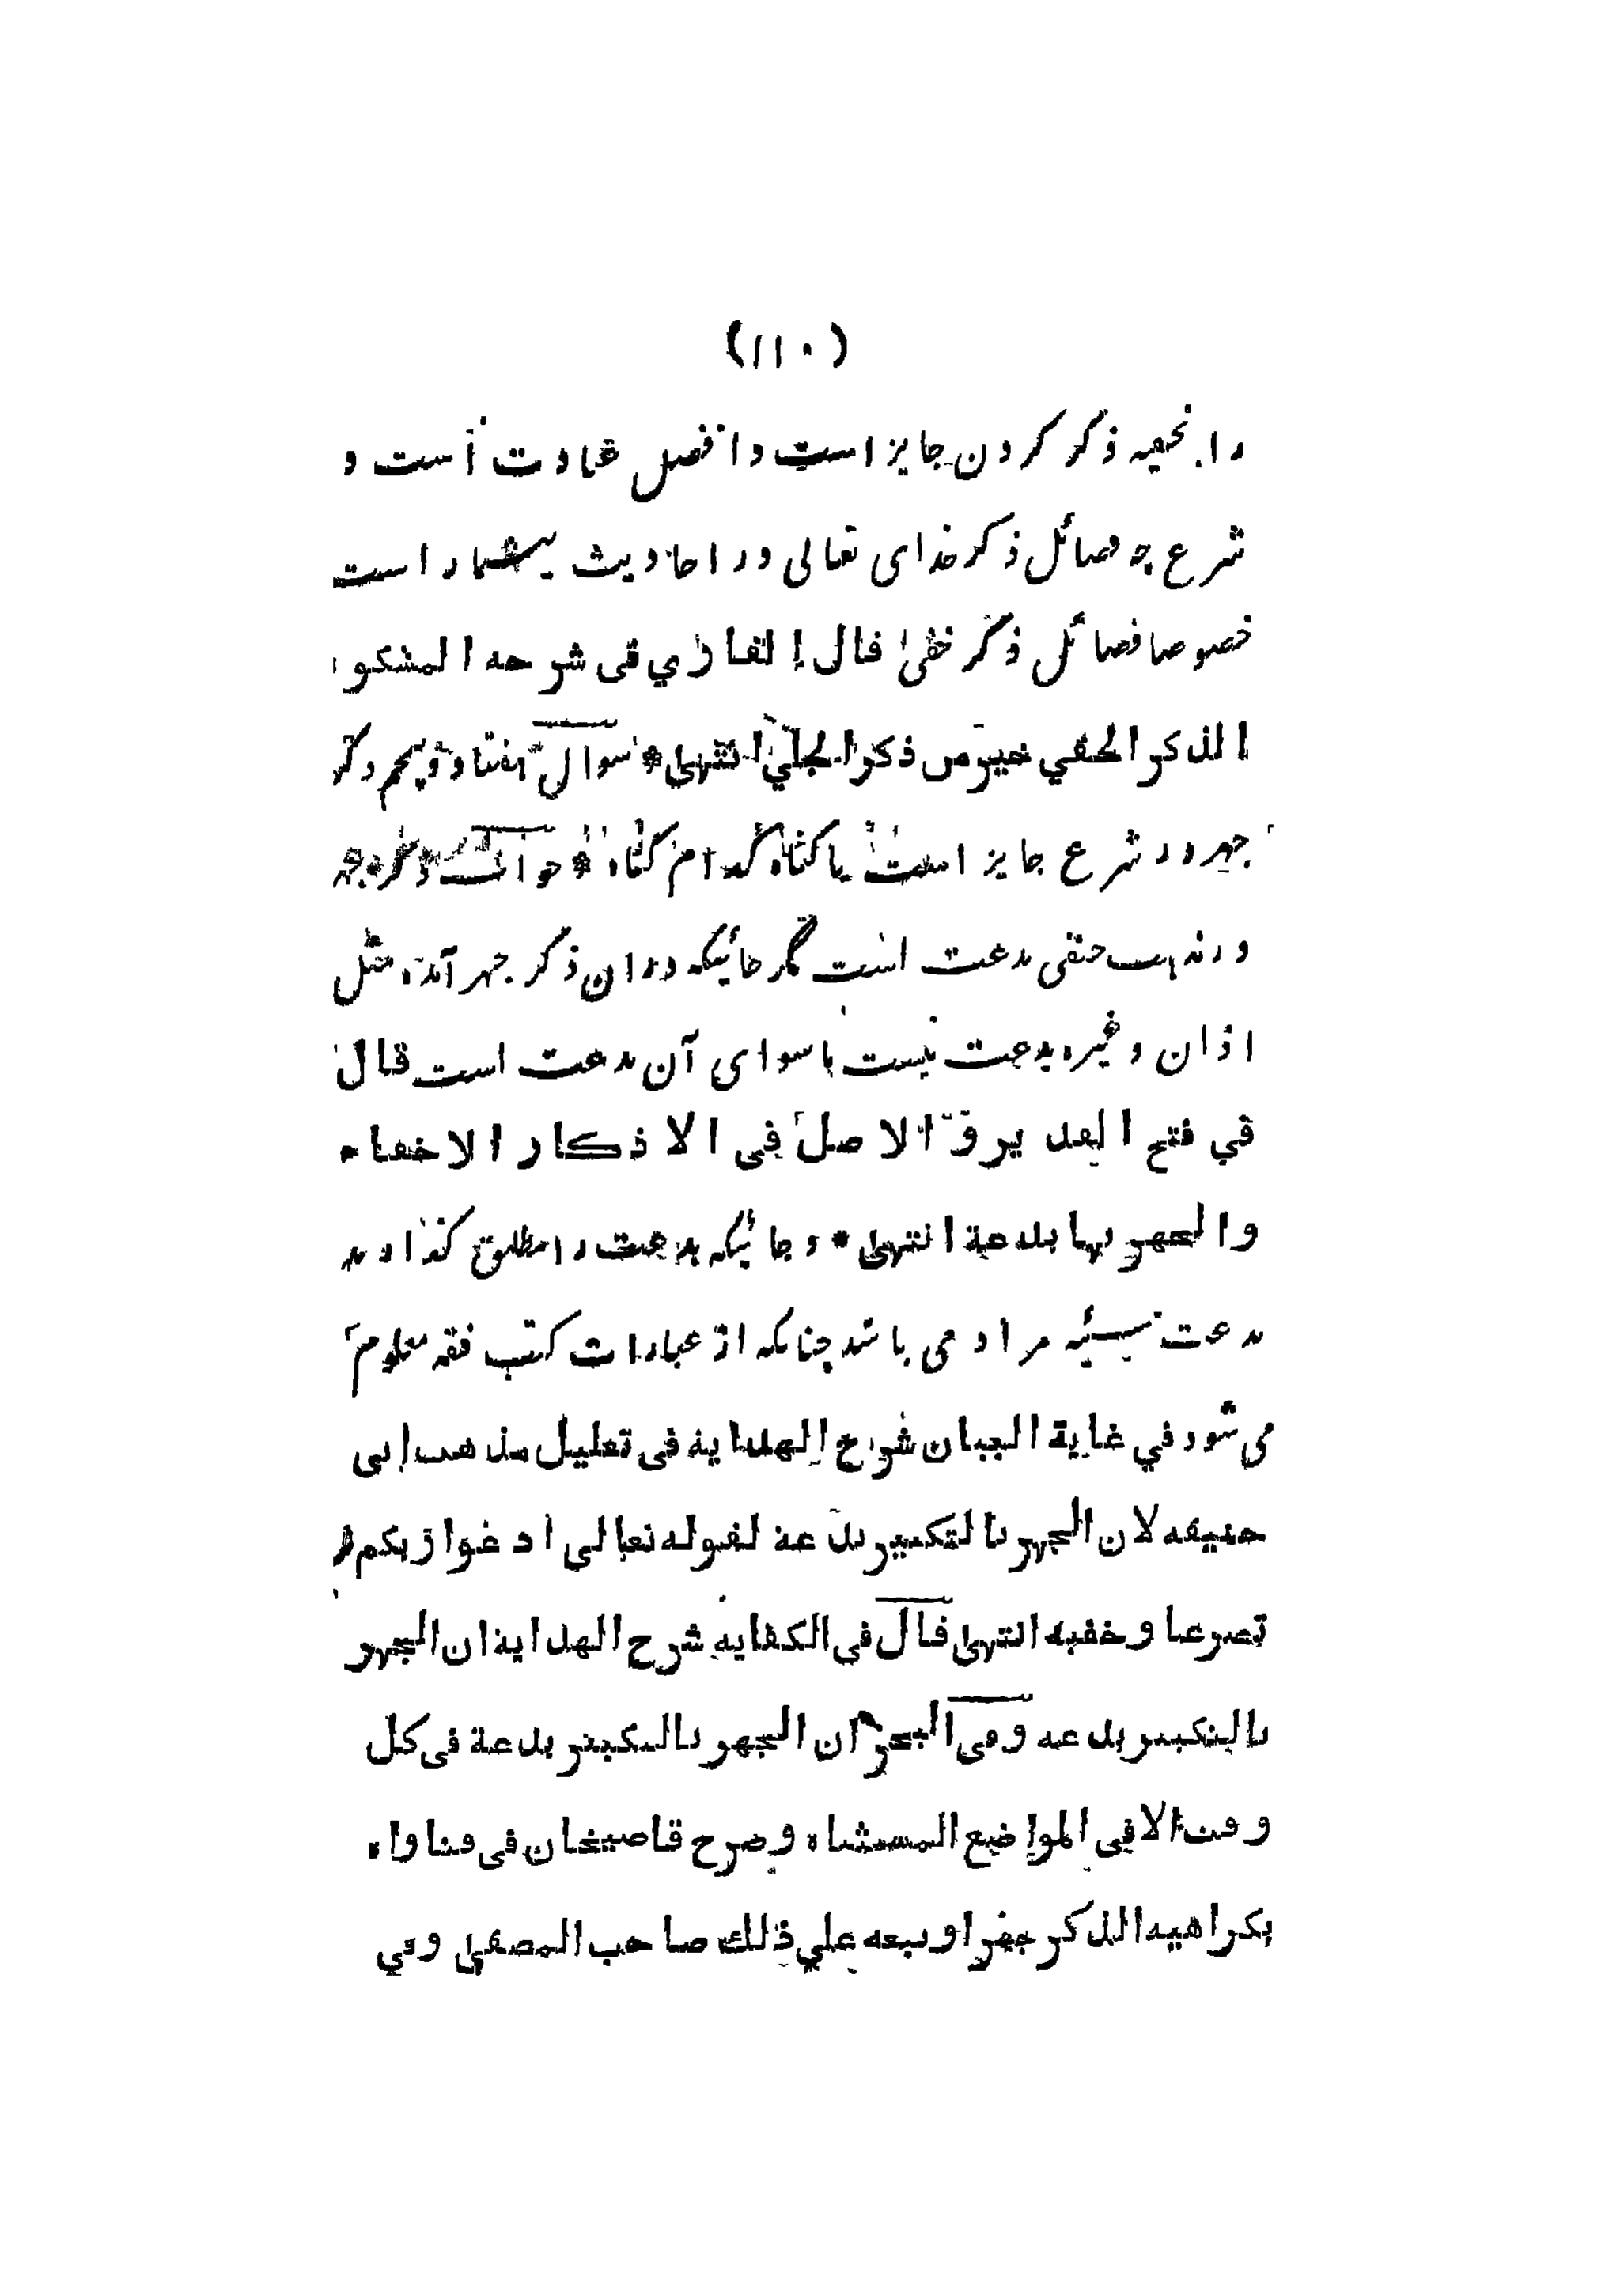 (۱۱۰)
را بخفیه ذکر کردن جایز است و افضل عبادت است و
شرع چه فضائل ذکر خدای تعالی در احادیث بیشمار است
خصوصا فضائل ذکر خفی قال القاري فی شرحه المشکوۃ
الذکر الخفي خیر من ذکر الجلي انتهی * سوال هفتاد و پنجم ذکر
جهر در شرع جایز است یا گناه کدام گناه * جواب ذکر جهر
در مذهب حنفی بدعت است مگر جائیکه دران ذکر جهر آمده مثل
اذان و غیره بدعت نیست ماسوای آن بدعت است قال
في فتح القدیر و الاصل فی الاذکار الاخفاء
والجهر بها بدعة انتهی * و جائیکه بدعت را مطلق گذارند
بدعت سیئه مراد می باشد چنانکه از عبارات کتب فقه معلوم
می شود في غایة البیان شرح الهدایة فی تعلیل مذهب ابی
حنیفه لان الجهر بالتکبیر بدعة لقوله تعالی ادعوا ربکم
تضرعا و خفیه انتهی قال فی الکفایه شرح الهدایة ان الجهر
بالتکبیر بدعه وفی البحر ان الجهر بالتکبیر بدعة فی کل
وقت الا فی المواضع المستثناه و صرح قاضیخان فی فتاواه
بکراهیه الذکر جهرا و تبعه علي ذلك صاحب المصفی وفي